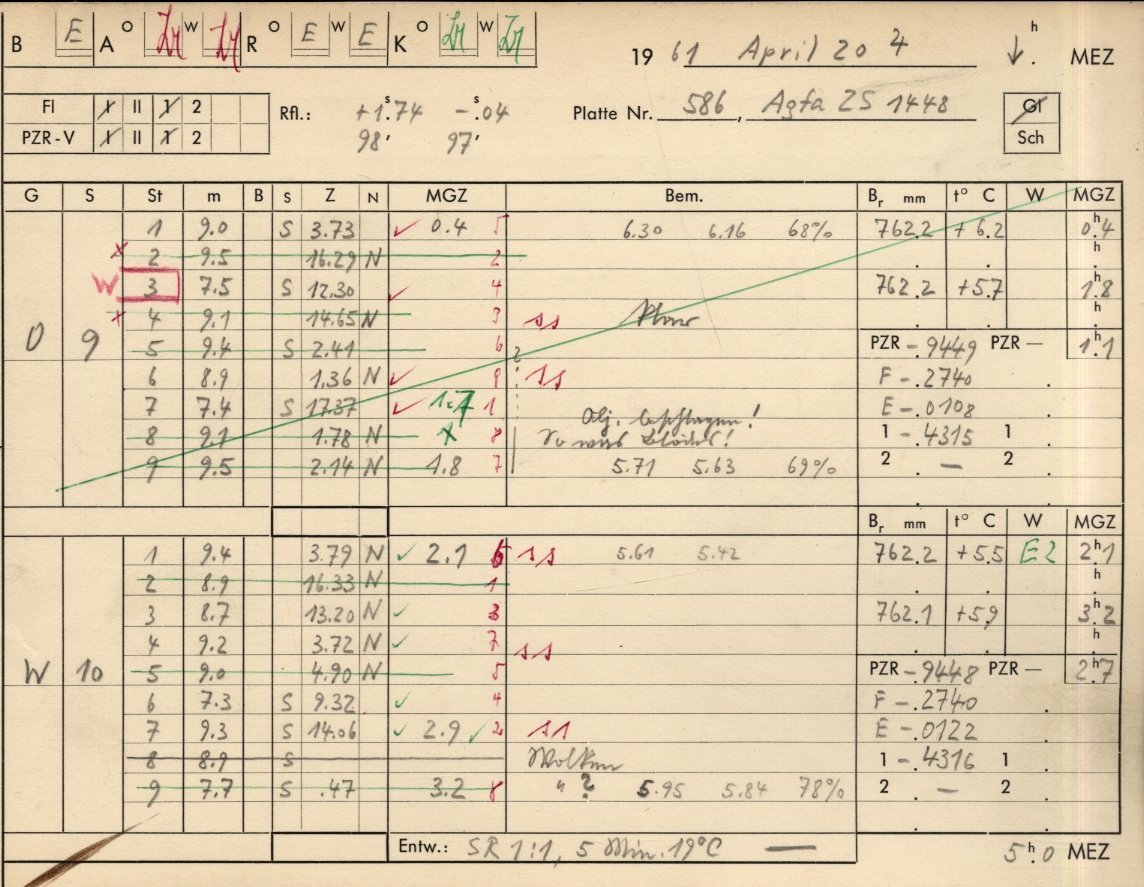 B E A O W R O E W E K O W 19 61 April 20 ↓ h. MEZ
Fl I II 1 2 Rfl.: +1ˢ.74 -ˢ.04 Platte Nr. 586, Agfa ZS 1448 Gl
PZR-V I II 1 2 98' 97' Sch
G S St m B S Z N MGZ Bem. Bᵣ mm t° C W MGZ
O 9
1 9.0 S 3.73 ✓ 0.4 5 6.30 6.16 68% 762.2 +6.2 0ʰ.4
x 2 9.5 16.29 N 2 h.
W 3 7.5 S 12.30 ✓ 4 762.2 +5.7 1ʰ.8
x 4 9.1 14.65 N 3 ss h.
5 9.4 S 2.41 6 PZR -.9449 PZR — 1ʰ.1
6 8.9 1.36 N ✓ 9 ? ss F -.2740
7 7.4 S 17.37 ✓ 1.7 1 Obj. beschlagen! E -.0108
8 9.1 1.78 N x 8 So was Blödes! 1 -.4315 1
9 9.5 2.14 N 1.8 7 5.71 5.63 69% 2 — 2
Bᵣ mm t° C W MGZ
W 10
1 9.4 3.79 N ✓ 2.1 6 ss 5.61 5.42 762.2 +5.5 E2 2ʰ.1
2 8.9 16.33 N 1 h.
3 8.7 13.20 N ✓ 3 762.1 +5.9 3ʰ.2
4 9.2 3.72 N ✓ 7 ss h.
5 9.0 4.90 N 5 PZR -.9448 PZR — 2ʰ.7
6 7.3 S 9.32 ✓ 4 F -.2740
7 9.3 S 14.06 ✓ 2.9 ✓ 2 ss E -.0122
8 8.9 S Wolken 1 -.4316 1
9 7.7 S .47 3.2 8 " ? 5.95 5.84 78% 2 — 2
Entw.: SR 1:1, 5 Min. 19°C — 5ʰ.0 MEZ